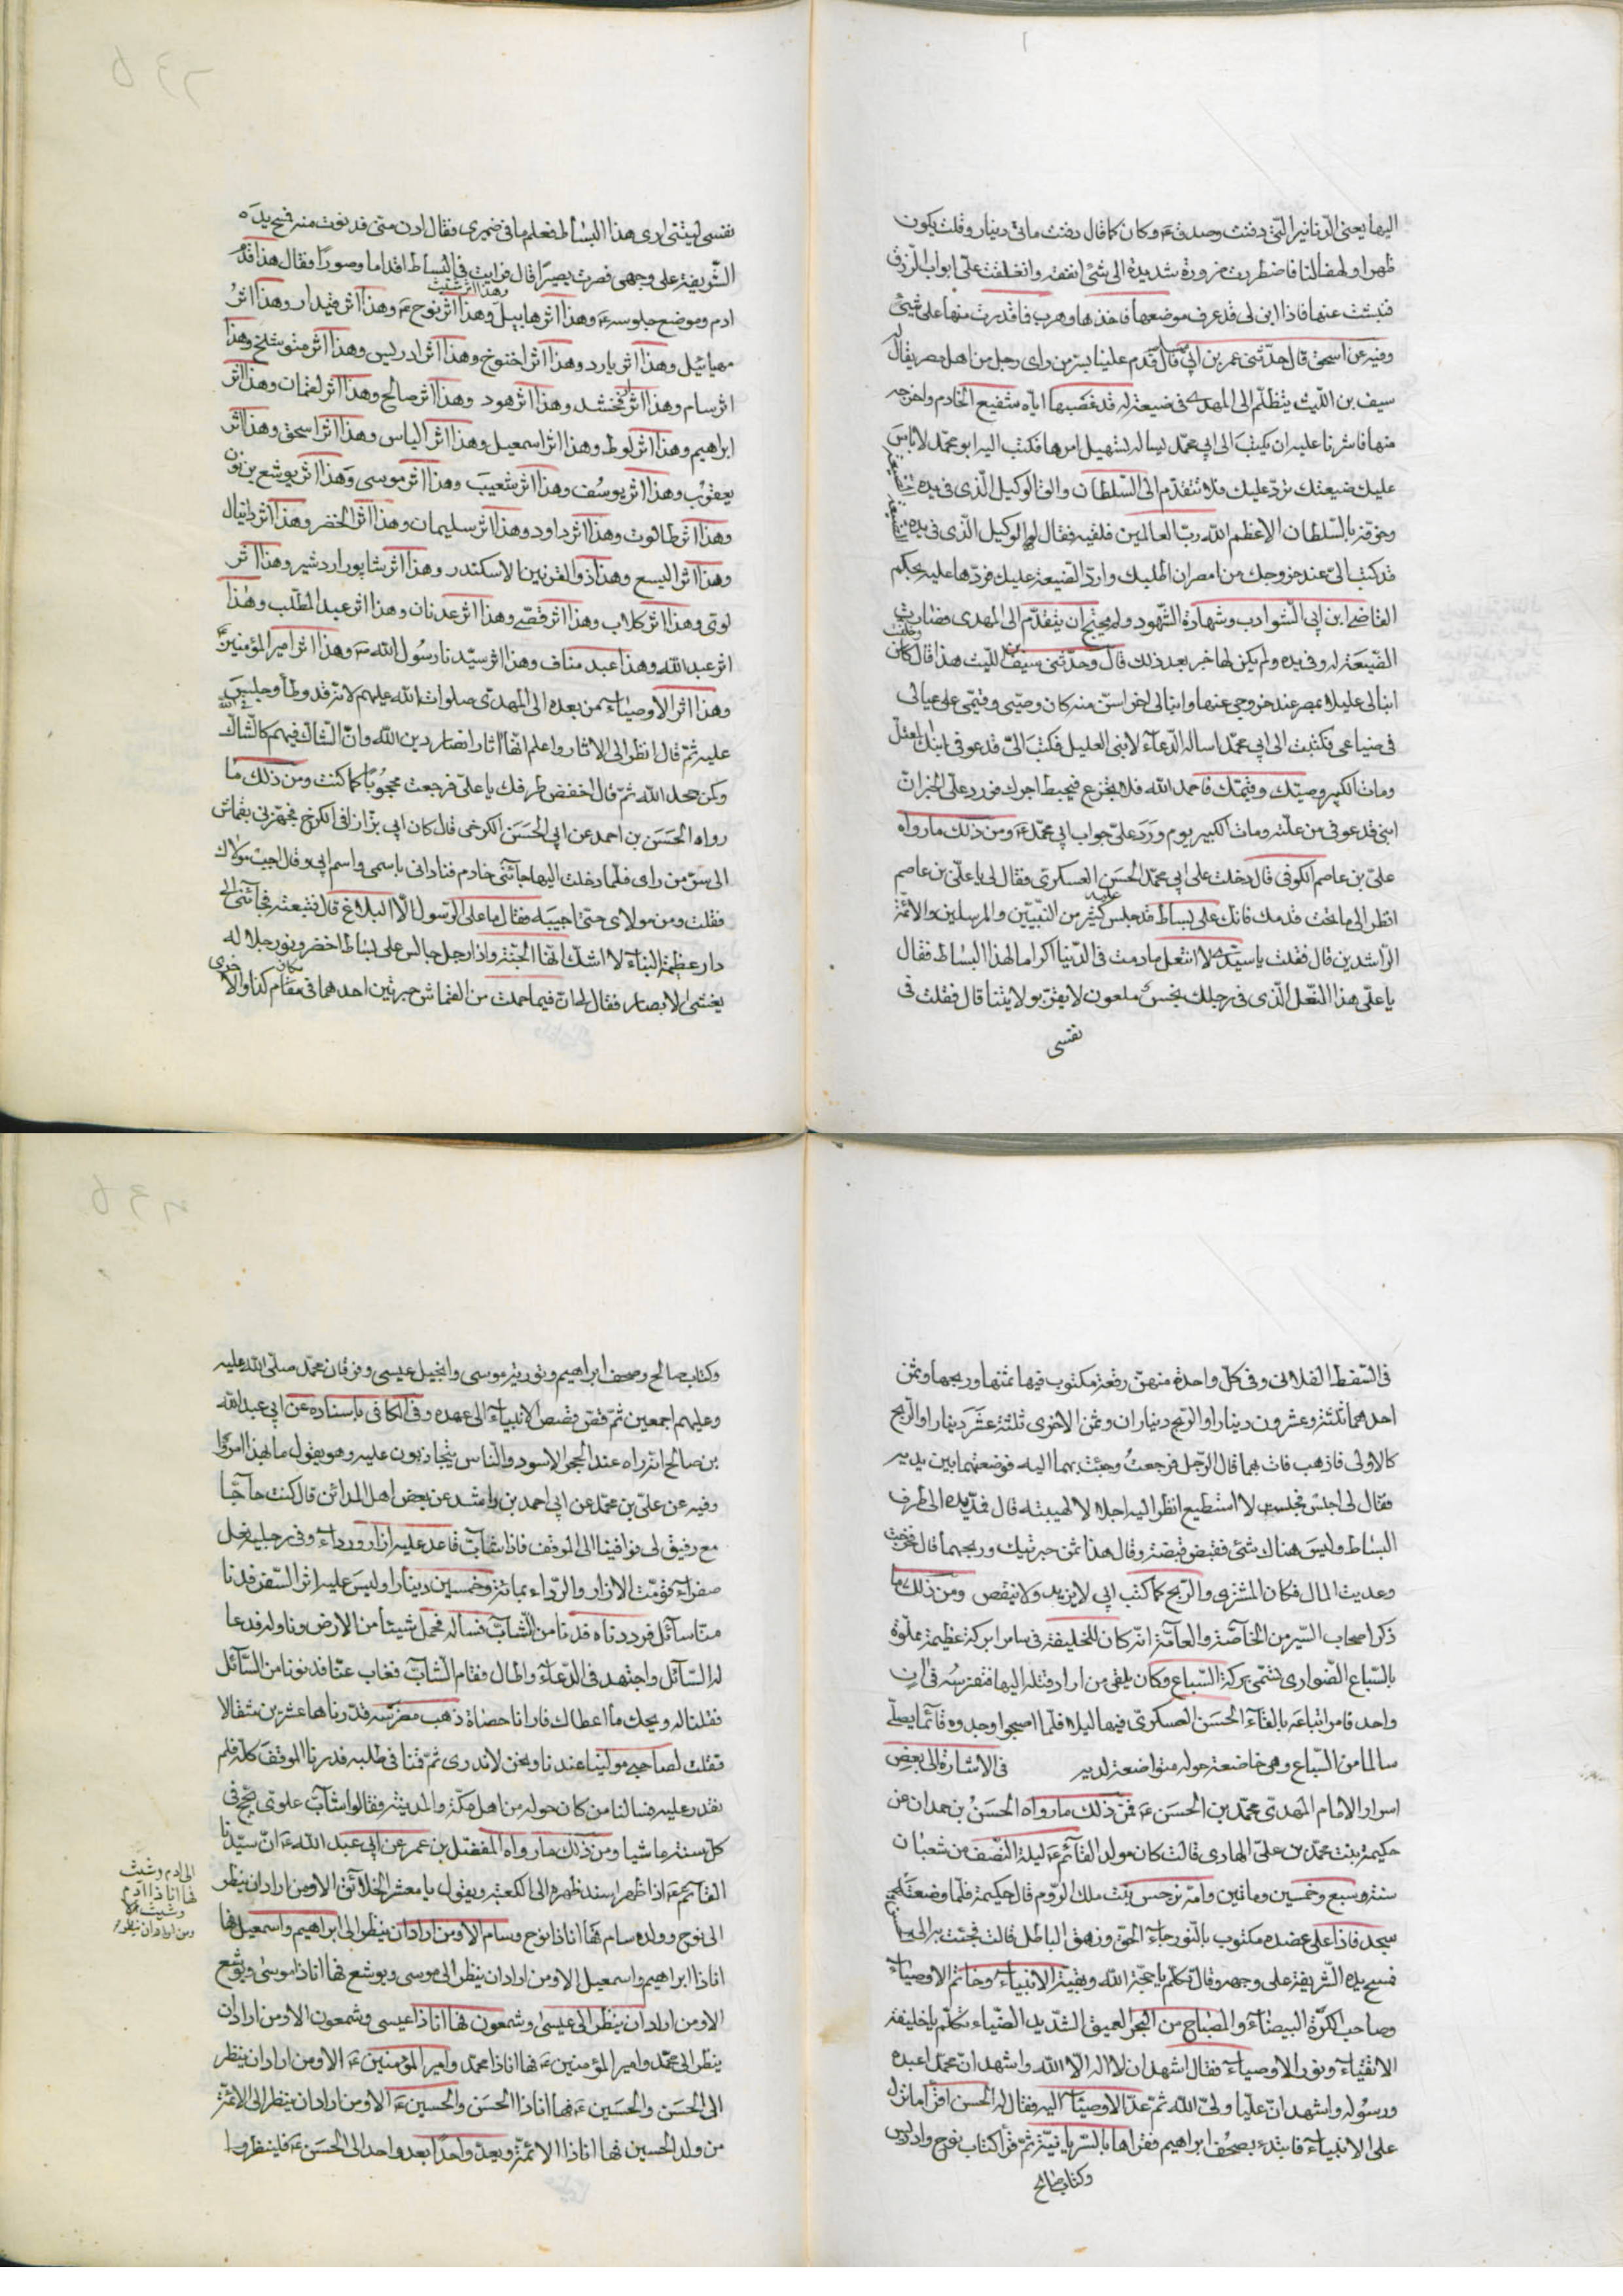 اليها يعني الدنانير التي دفنت وصدق ع‍ وكان كما قال دفنت ماتى دينار وقلت يكون
ظهرا وكهفا لنا فاضطررت ضرورة شديدة الى شئ انفقه وانغلقت على ابواب الرزق
فنبشت عنها فاذا ابن لى قد عرف موضعها فاخذها وهرب فما قدرت منها على شئ
وفيه عن اسحق قال حدثنى عمر بن ابى مسلم قال قدم علينا بسر من راى رجل من اهل مصر يقال له
سيف بن الليث يتظلم الى المهدى فى ضيعة له قد غصبها اياه شفيع الخادم واخرجه
منها فاشرنا عليه ان يكتب الى ابى محمد يساله تسهيل امرها فكتب اليه ابو محمد لا باس
عليك ضيعتك ترد عليك فلا تتقدم الى السلطان والق الوكيل الذى فى يده الضيعة
وخوفه بالسلطان الاعظم الله رب العالمين فلقيه فقال له الوكيل الذى فى يده الضيعة
قد كتب الى عند خروجك من مصر ان اطلبك وارد الضيعة عليك فردها عليه بحكم
القاضى ابن ابى الشوارب وشهادة الشهود ولم يحتج ان يتقدم الى المهدى فصارت
الضيعة له وفى يده ولم يكن لها خبر بعد ذلك قال وحدثنى سيف بن الليث هذا قال كان وخلفت
ابنا لى عليلا بمصر عند خروجى عنها وابنا لى اخر اسن منه كان وصيى وقيمى على عيالى
فى ضياعى فكتبت الى ابى محمد اساله الدعاء لابنى العليل فكتب الى قد عوفى ابنك المعتل
ومات الكبير وصيك وقيمك فاحمد الله فلا تجزع فيحبط اجرك فورد على الخبر ان
ابنى قد عوفى من علته ومات الكبير يوم ورد على جواب ابى محمد ع‍ ومن ذلك ما رواه
على بن عاصم الكوفى قال دخلت على ابى محمد الحسن العسكرى فقال لى يا على بن عاصم
انظر الى ما تحت قدمك فانك على بساط قد جلس عليه كثير من النبيين والمرسلين والائمة
الراشدين قال فقلت يا سيدى لا انتعل مادمت فى الدنيا اكراما لهذا البساط فقال
يا على هذا النعل الذى فى رجلك نجس ملعون لا يقر بولايتنا قال فقلت فى
نفسى
نفسى ليتنى ارى هذا البساط فعلم ما فى ضميرى فقال ادن منى فدنوت منه فمسح يده
الشريفة على وجهى فصرت بصيرا قال فرايت فى البساط اقداما وصورا فقال هذا قدم
ادم وموضع جلوسه ع‍ وهذا اثر هابيل وهذا اثر شيث وهذا اثر نوح ع‍ وهذا اثر قيدار وهذا اثر
مهيائيل وهذا اثر يارد وهذا اثر اخنوخ وهذا اثر ادريس وهذا اثر متوشلخ وهذا
اثر سام وهذا اثر ارفخشد وهذا اثر هود وهذا اثر صالح وهذا اثر لقمان وهذا اثر
ابراهيم وهذا اثر لوط وهذا اثر اسمعيل وهذا اثر الياس وهذا اثر اسحق وهذا اثر
يعقوب وهذا اثر يوسف وهذا اثر شعيب وهذا اثر موسى وهذا اثر يوشع بن نون
وهذا اثر طالوت وهذا اثر داود وهذا اثر سليمان وهذا اثر الخضر وهذا اثر دانيال
وهذا اثر اليسع وهذا ذو القرنين الاسكندر وهذا اثر شاپور اردشير وهذا اثر
لوى وهذا اثر كلاب وهذا اثر قصى وهذا اثر عدنان وهذا اثر عبد المطلب وهذا
اثر عبد الله وهذا عبد مناف وهذا اثر سيدنا رسول الله ص وهذا اثر امير المؤمنين
وهذا اثر الاوصياء من بعده الى المهدى صلوات الله عليهم لانه قد وطأ وجلس
عليه ثم قال انظر الى الاثار واعلم انها اثار انصار دين الله وان الشاك فيهم كالشاك فى الله
وكمن جحد الله ثم قال اخفض طرفك يا على فرجعت محجوبا كما كنت ومن ذلك ما
رواه الحسن بن احمد عن ابى الحسن الكرخى قال كان ابى بزازا فى الكرخ فجهزنى بقماش
الى سر من راى فلما دخلت اليها جائنى خادم فنادانى باسمى واسم ابى وقال اجب مولاك
فقلت ومن مولاى حتى اجيبه فقال ما على الرسول الا البلاغ قال فتبعته فجائنى الى
دار عظيمة البناء لا اشك انها الجنة واذا رجل جالس على بساط اخضر ونور جلاله
يغشى الابصار فقال لى ان فيما حملت من القماش حبرتين احدهما فى مكان كذا والاخرى
فى السفط الفلانى وفى كل واحدة منهن رقعة مكتوب فيها ثمنها وربحها وثمن
احدهما ثلثة وعشرون دينارا والربح ديناران وثمن الاخرى ثلثة عشر دينارا والربح
كالاولى فاذهب فات بهما قال الرجل فرجعت وجئت بهما اليه فوضعتهما بين يديه
فقال لى اجلس فجلست لا استطيع انظر اليه اجلالا لهيبته قال فمد يده الى طرف
البساط وليس هناك شئ فقبض قبضة وقال هذا ثمن حبرتيك وربحهما قال فخرجت
وعديت المال فكان المشترى والربح كما كتب ابى لا يزيد ولا ينقص ومن ذلك ما
ذكر اصحاب السير من الخاصة والعامة انه كان للخليفة فى سامرا بركة عظيمة مملوة
بالسباع الضوارى تسمى بركة السباع وكان يلقى من اراد قتله اليها فتفترسه فى ان
واحد فامر اتباعه بالقاء الحسن العسكرى فيها ليلا فلما اصبحوا وجدوه قائما يصلى
سالما من السباع وهى خاضعة حوله متواضعة لديه فى الاشارة الى بعض
اسرار الامام المهدى محمد بن الحسن ع‍ فمن ذلك ما رواه الحسن بن حمدان عن
حكيمة بنت محمد بن على الهادى قالت كان مولد القائم ع‍ ليلة النصف من شعبان
سنة وسبع وخمسين وماتين وامه نرجس بنت ملك الروم قال حكيمة فلما وضعته
سجد فاذا على عضده مكتوب بالنور جاء الحق وزهق الباطل قالت فجئت به الى
فمسح يده الشريفة على وجهه وقال تكلم يا حجة الله وبقية الانبياء وخاتم الاوصياء
وصاحب الكرة البيضاء والمصباح من البحر العميق الشديد الضياء تكلم يا خليفة
الاتقياء ونور الاوصياء فقال اشهد ان لا اله الا الله واشهد ان محمدا عبده
ورسوله واشهد ان عليا ولى الله ثم عد الاوصياء اليه فقال له الحسن اقرا ما نزل
على الانبياء فابتدء بصحف ابراهيم فقراها بالسريانية ثم قرأ كتاب نوح وادريس
وكتاب صالح
وكتاب صالح وصحف ابراهيم وتورية موسى وانجيل عيسى وفرقان محمد صلى الله عليه
وعليهم اجمعين ثم قص قصص الانبياء الى عهده وفى الكافى باسناده عن ابى عبد الله
بن صالح انه راه عند الحجر الاسود والناس يتجاذبون عليه وهو يقول ما بهذا امروا
وفيه عن على بن محمد عن ابى احمد بن راشد عن بعض اهل المدائن قال كنت حاجا
مع رفيق لى فوافينا الى الموقف فاذا شاب قاعد عليه ازار ورداء وفى رجليه نعل
صفراء قومت الازار والرداء بمائة وخمسين دينارا وليس عليه اثر السفر فدنا
منا سائل فرددناه فدنا من الشاب فساله فحمل شيئا من الارض وناوله فدعا
له السائل واجتهد فى الدعاء واطال فقام الشاب فغاب عنا فدنونا من السائل
فقلنا له ويحك ما اعطاك فارانا حصاة ذهب مضرسه قدرناها عشرين مثقالا
فقلت لصاحبى مولينا عندنا ونحن لا ندرى ثم قمنا فى طلبه فدرنا الموقف كله فلم
نقدر عليه فسالنا من كان حوله من اهل مكة والمدينة فقالوا شاب علوى يحج فى
كل سنة ماشيا ومن ذلك ما رواه المفضل بن عمر عن ابى عبد الله ع‍ ان سيدنا
القائم ع‍ اذا ظهر اسند ظهره الى الكعبة ويقول يا معشر الخلائق الا ومن اراد ان ينظر
الى ادم وشيث
فها انا ذا ادم
وشيث الا
ومن اراد ان ينظر
الى نوح وولده سام فها انا ذا نوح وسام الا ومن اراد ان ينظر الى ابراهيم واسمعيل فها
انا ذا ابراهيم واسمعيل الا ومن اراد ان ينظر الى موسى ويوشع فها انا ذا موسى ويوشع
الا ومن اراد ان ينظر الى عيسى وشمعون فها انا ذا عيسى وشمعون الا ومن اراد ان
ينظر الى محمد وامير المؤمنين ع‍ فها انا ذا محمد وامير المؤمنين ع‍ الا ومن اراد ان ينظر
الى الحسن والحسين ع‍ فها انا ذا الحسن والحسين ع‍ الا ومن اراد ان ينظر الى الائمة
من ولد الحسين فها انا ذا الائمة ويعد واحدا بعد واحد الى الحسن ع‍ فلينظروا